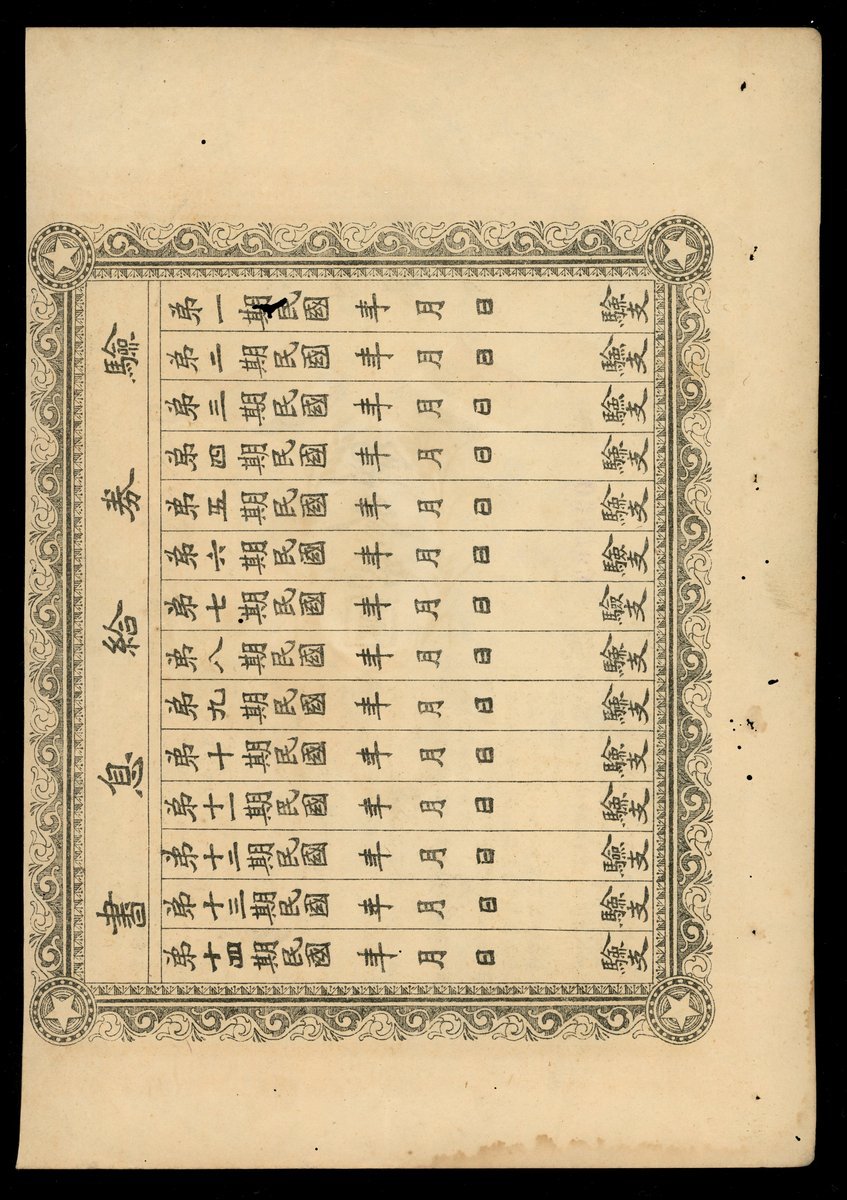 驗券給息書
弟一期民國 年 月 日 驗支
弟二期民國 年 月 日 驗支
弟三期民國 年 月 日 驗支
弟四期民國 年 月 日 驗支
弟五期民國 年 月 日 驗支
弟六期民國 年 月 日 驗支
弟七期民國 年 月 日 驗支
弟八期民國 年 月 日 驗支
弟九期民國 年 月 日 驗支
弟十期民國 年 月 日 驗支
弟十一期民國 年 月 日 驗支
弟十二期民國 年 月 日 驗支
弟十三期民國 年 月 日 驗支
弟十四期民國 年 月 日 驗支